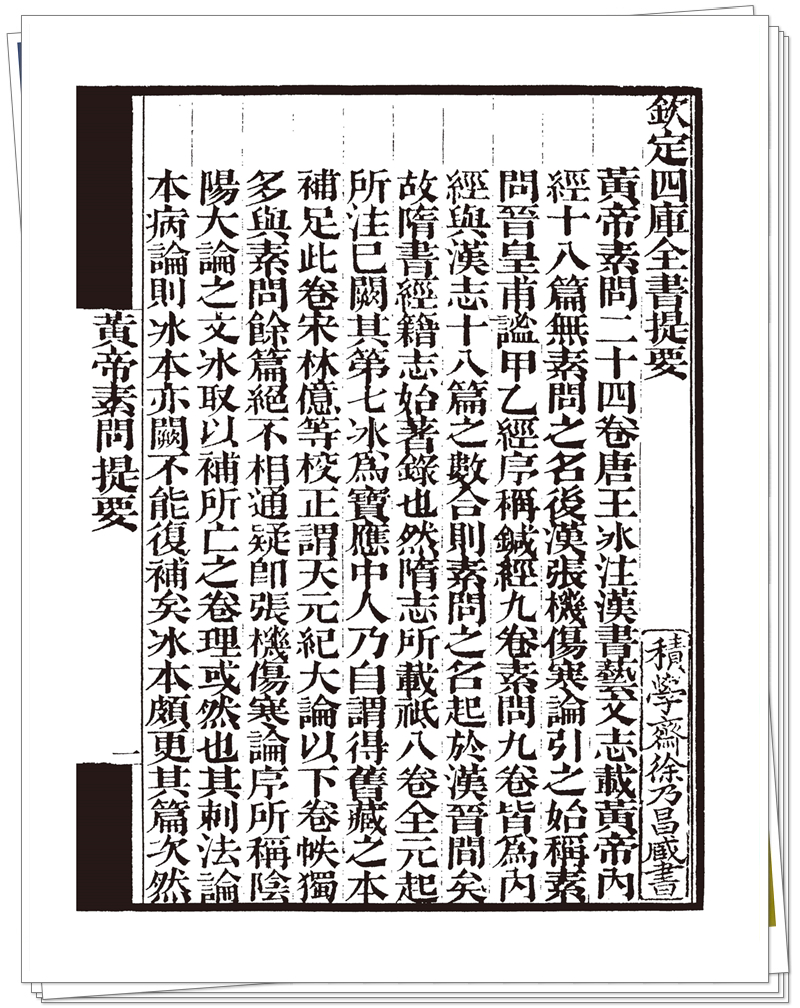 欽定四庫全書提要
積學齋徐乃昌藏書
黃帝素問二十四卷唐王冰注漢書藝文志載黃帝內
經十八篇無素問之名後漢張機傷寒論引之始稱素
問晉皇甫謐甲乙經序稱鍼經九卷素問九卷皆爲內
經與漢志十八篇之數合則素問之名起於漢晉間矣
故隋書經籍志始著錄也然隋志所載祇八卷全元起
所注已闕其第七冰爲寶應中人乃自謂得舊藏之本
補足此卷宋林億等校正謂天元紀大論以下卷帙獨
多與素問餘篇絕不相通疑卽張機傷寒論序所稱陰
陽大論之文冰取以補所亡之卷理或然也其刺法論
本病論則冰本亦闕不能復補矣冰本頗更其篇次然
黃帝素問提要
一